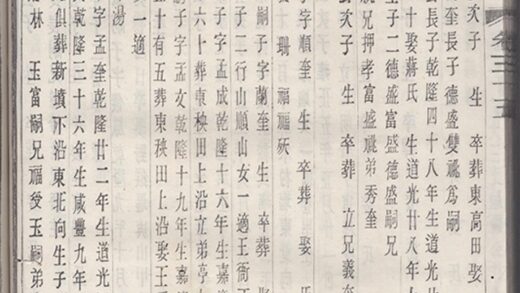 卷三十五
次子 生 卒葬東高田娶
奎長子 德盛雙祧爲嗣
長子乾隆四十八年生道光
十娶蔣氏 生道光廿八年十
生子二德富盛德盛嗣兄
兄押孝富盛祧弟秀奎
次子 生 卒葬 立兄義奎
子字順奎 生 卒葬 娶
珊 福福
嗣子字蘭奎 生 卒葬
行山順山女一適王衙
子字孟成乾隆十六年生嘉
六十葬東秧田上沿立弟亭
子字孟女乾隆十九年生嘉
十有五葬東秧田上沿娶王
女一適
湯
字孟奎乾隆廿二年生道光
乾隆三十六年生咸豐九年
俱葬新墳不沿東北向生子
林 玉富嗣兄福受玉嗣弟